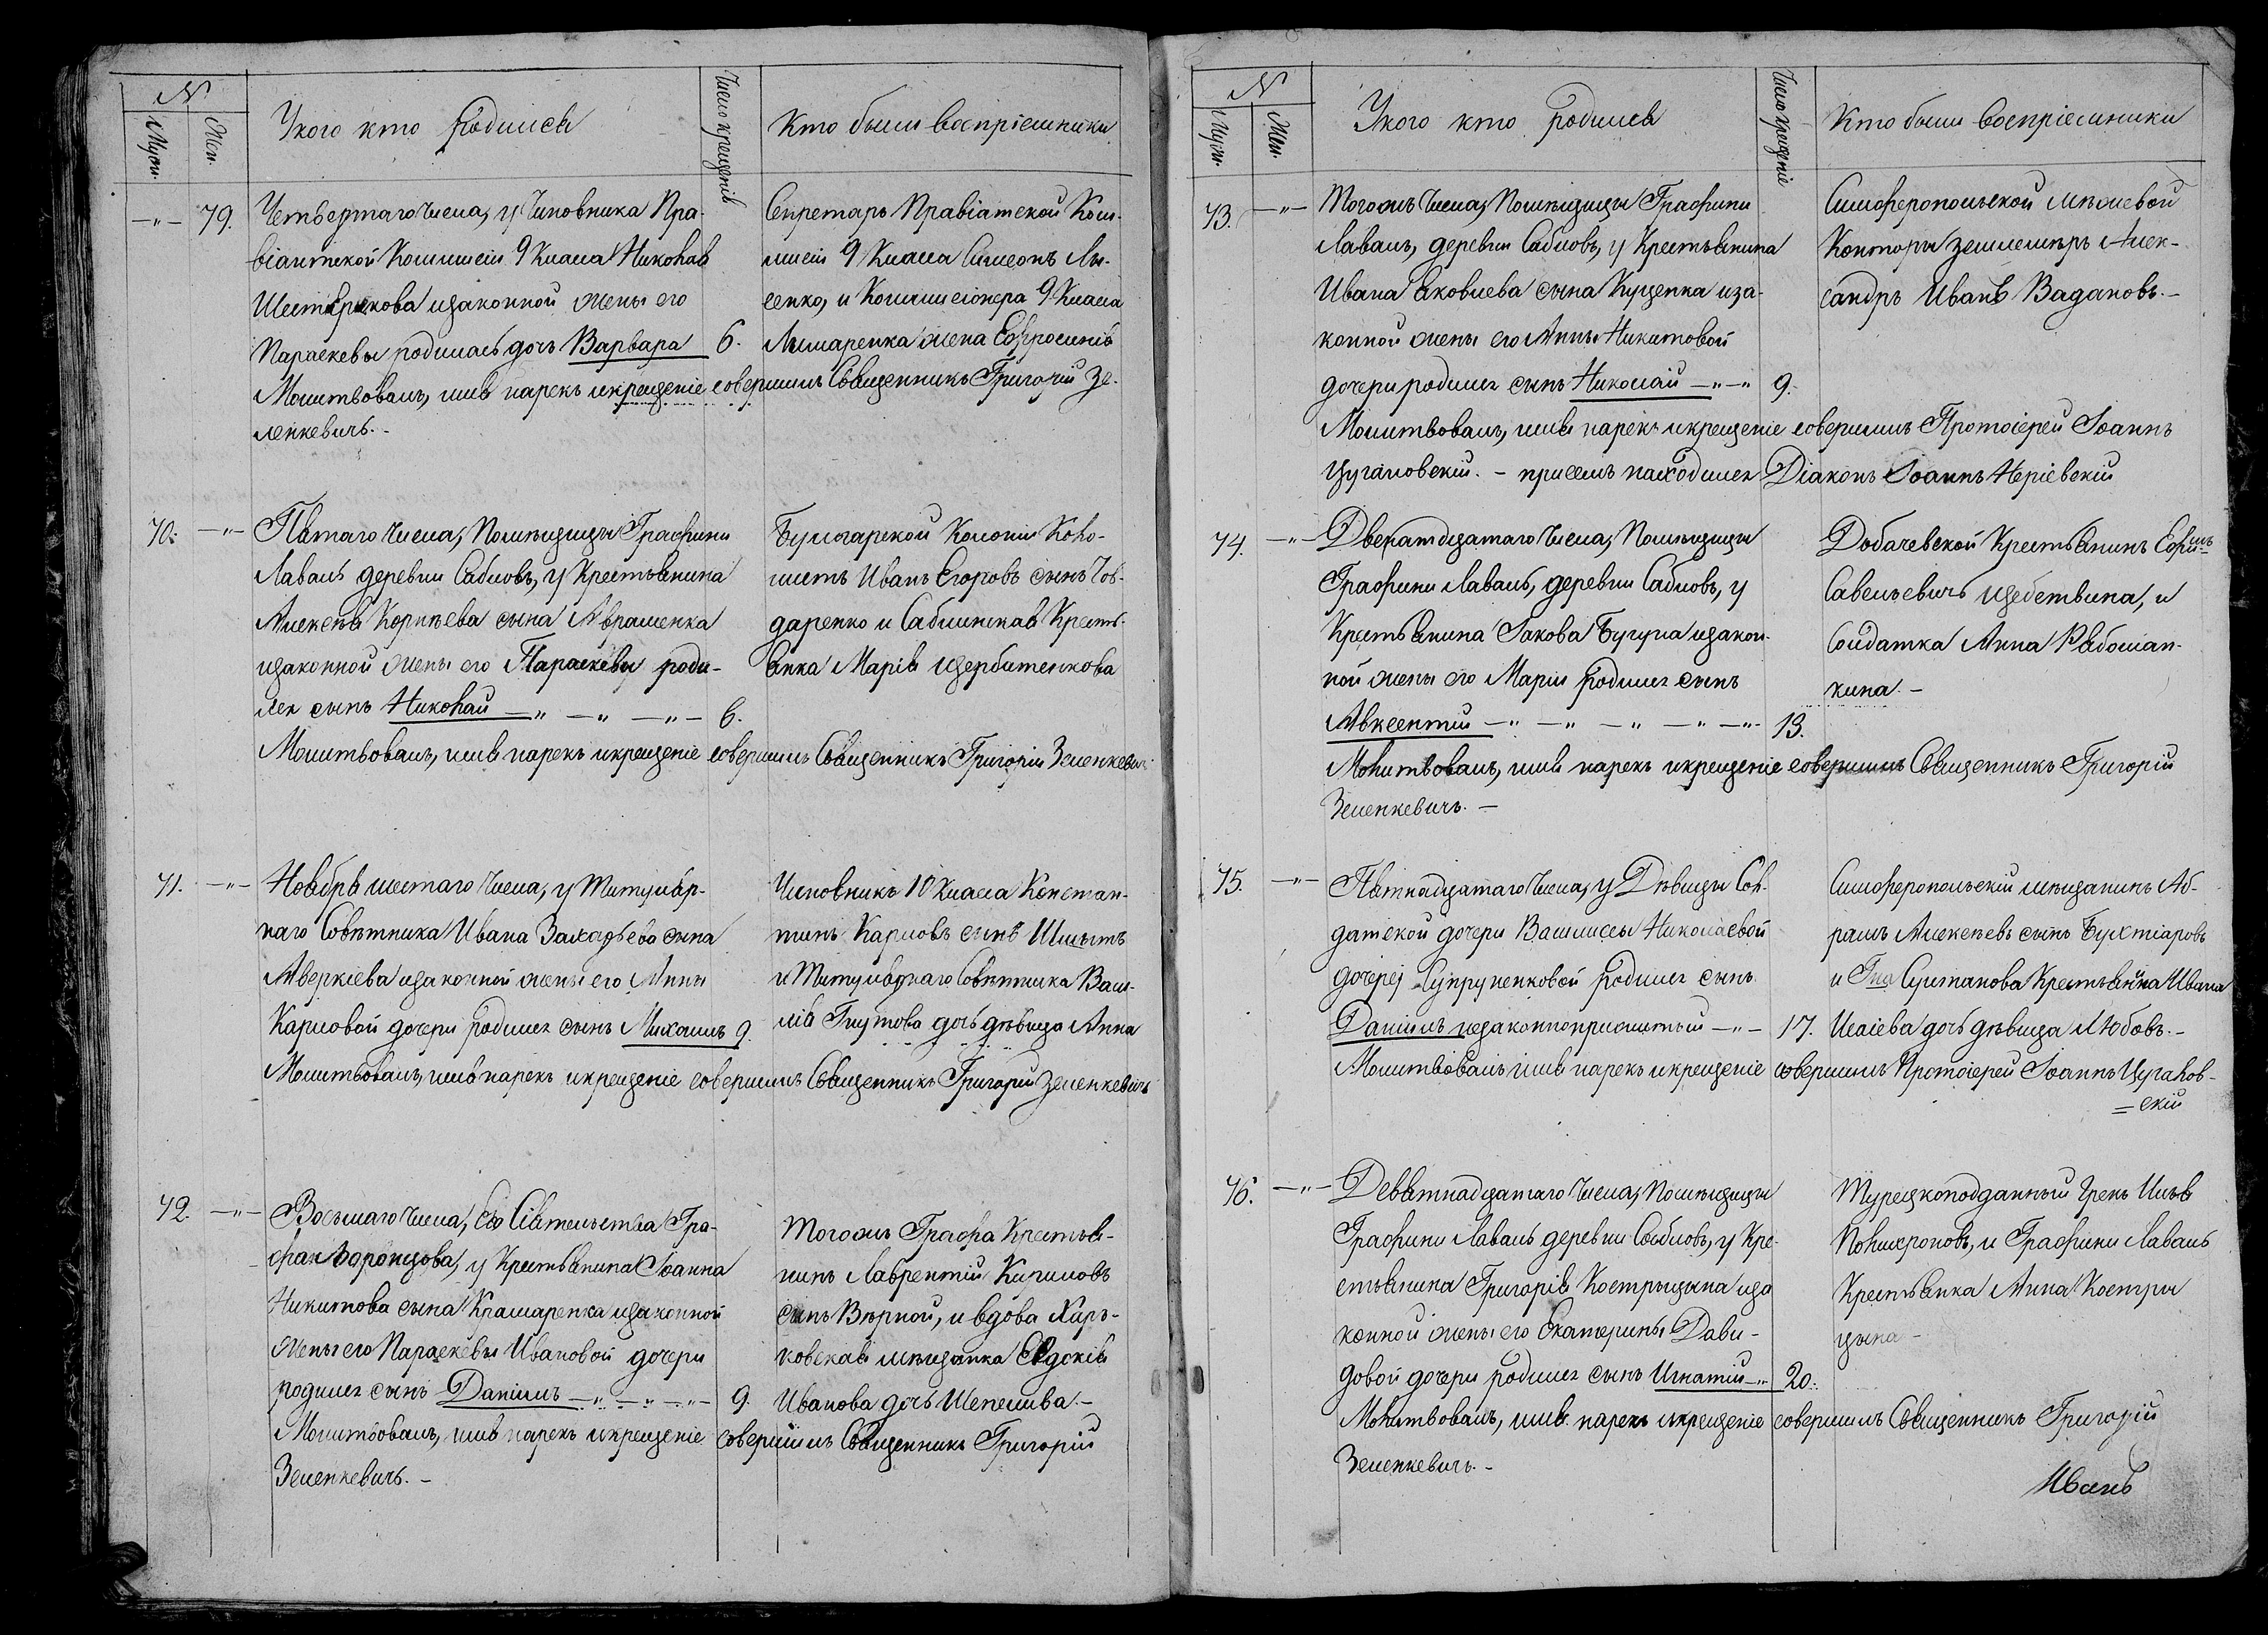 №
Муж.
Жен.
У кого кто родился
Число крещенія
Кто были воспріемники
—"— 79. Четвертаго числа, у Чиновника Про-
віантской Коммиссіи 9 Класа Николая
Шестерикова изаконной жены его
Параскевы родилась дочь Варвара 6.
Секретарь Правіатской Ком-
мисіи 9 Класа Симеонъ Лы-
сенко, и Коммисіонера 9 Класа
Лимаренка жена Евфросинія
Молитвовалъ, имя нарекъ икрещеніе совершилъ Священникъ Григорій Зе-
ленкевичь.-
70. —"— Пятаго числа, Помѣщицы Графини
Лаваль деревни Сабловъ, у Крестьянина
Алексѣя Корнѣева сына Аврашенка
изаконной жены его Параскевы роди-
лся сынъ Николай —"—"—"— 6.
Булгарской Колоніи Коло-
нистъ Иванъ Егоровъ сынъ Чов-
даренко и Саблинская Кресть-
янка Марія Щербатенкова
Молитвовалъ, имя нарекъ икрещеніе совершилъ Священникъ Григорій Зеленкевичь
71. —"— Ноября шестаго числа, у Титуляр-
наго Совѣтника Ивана Захарьева сына
Аверкіева изаконной жены его Анны
Карловой дочери родился сынъ Михаилъ 9.
Чиновникъ 10 Класа Констан-
тинъ Карловъ сынъ Шмытъ
и Титулярнаго Совѣтника Васи-
лія Глутова дочь дѣвица Анна
Молитвовалъ, имя нарекъ икрещеніе совершилъ Священникъ Григорій Зеленкевичь
72. —"— Восьмаго числа, Его Сіятельства Гра-
фа Воронцова, у Крестьянина Іоанна
Никитова сына Крамаренка изаконной
жены его Параскевы Ивановой дочери
родился сынъ Даніилъ —"—"—"— 9.
Тогожъ Графа Крестья-
нинъ Лаврентій Кириловъ
сынъ Вѣрной, и вдова Харь-
ковская мѣщанка Евдокія
Иванова дочь Шепелива.-
Молитвовалъ, имя нарекъ икрещеніе совершилъ Священникъ Григорій
Зеленкевичь.-
№
Муж.
Жен.
У кого кто родился
Число крещеніе
Кто были воспріемники
73. —"— Тогожъ числа, Помѣщицы Графини
Лаваль, деревни Сабловъ, у Крестьянина
Ивана Яковлева сына Куценка иза-
конной жены его Анны Никитовой
дочери родился сынъ Николай —"—" 9.
Симферопольской межевой
Конторы землемѣръ Алек-
сандръ Иванъ Вадановъ.-
Молитвовалъ, имя нарекъ икрещеніе совершилъ Протоіерей Іоаннъ
Цугановскій.- присемъ находился Діаконъ Іоаннъ Неріевскій
74. —"— Двенатдцатаго числа, Помѣщицы
Графини Лаваль, деревни Сабловъ, у
Крестьянина Іакова Бугуна изакон-
ной жены его Маріи родился сынъ
Авксентій —"—"—"—"—"— 13.
Добачевской Крестьянинъ
Савельевичь Щебетвина, и
Солдатка Анна Рябошап-
кина.-
Молитвовалъ, имя нарекъ икрещеніе совершилъ Священникъ Григорій
Зеленкевичь.-
75. —"— Пятнадцатаго числа, у Дѣвицы Сол-
датской дочери Василисы Николаевой
дочери Супруненковой родился сынъ
Даніилъ незаконноприжитый —"— 17.
Симферопольскій мѣщанинъ Аб-
рамъ Алексѣевъ сынъ Бухтіаровъ
и Гна Султанова Крестьянина Ивана
Исаіева дочь дѣвица Любовь.-
Молитвовалъ имя нарекъ икрещеніе совершилъ Протоіерей Іоаннъ Цуганов-
=скій
76. —"— Девятнадцатаго числа, Помѣщицы
Графини Лаваль деревни Сабловъ, у Кре-
стьянина Григорія Кострыцына иза
конной жены его Екатерины Дави-
довой дочери родился сынъ Игнатій—" 20.
Турецкоподданный Грекъ Илья
Полихроновъ, и Графини Лаваль
Крестьянка Анна Костри
цына-
Молитвовалъ, имя нарекъ икрещеніе совершилъ Священникъ Григорій
Зеленкевичь.-
Иванъ